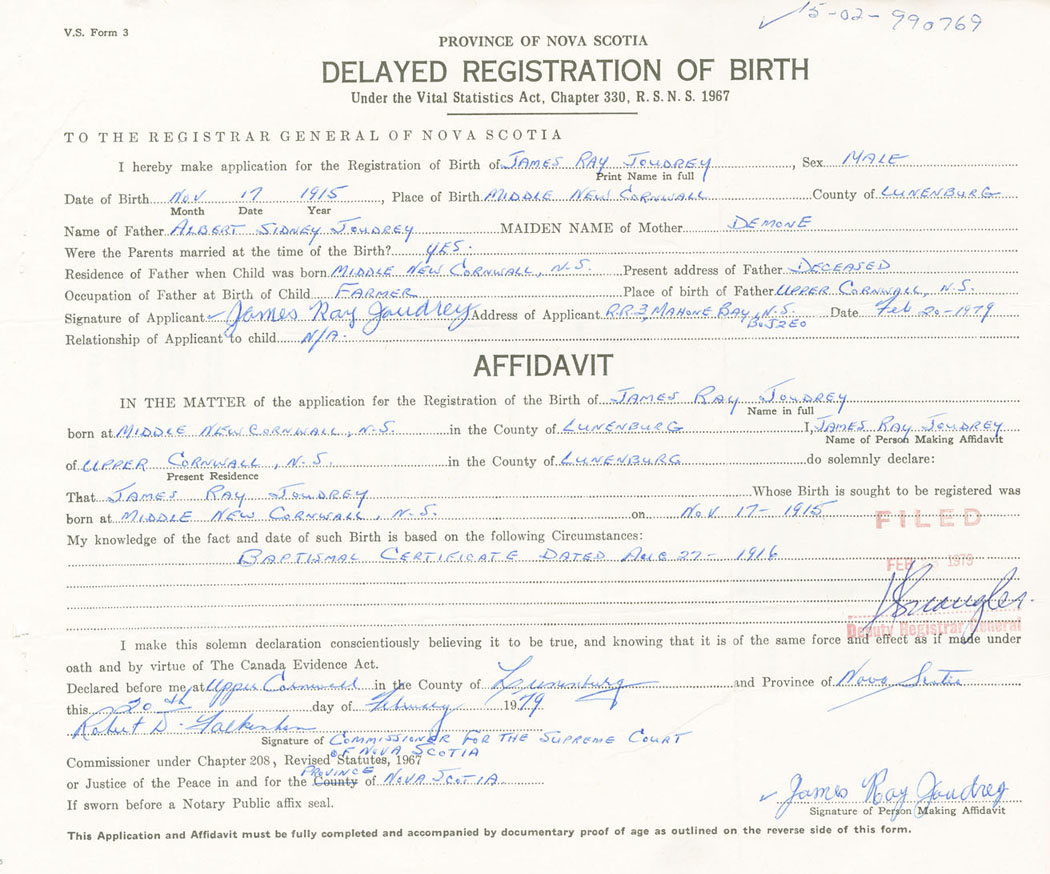 V.S. Form 3
15-02-990769
PROVINCE OF NOVA SCOTIA
DELAYED REGISTRATION OF BIRTH
Under the Vital Statistics Act, Chapter 330, R. S. N. S. 1967
TO THE REGISTRAR GENERAL OF NOVA SCOTIA
I hereby make application for the Registration of Birth of JAMES RAY JOUDREY, Sex MALE
Print Name in full
Date of Birth NOV 17 1915, Place of Birth MIDDLE NEW CORNWALL County of LUNENBURG
Month Date Year
Name of Father ALBERT SIDNEY JOUDREY MAIDEN NAME of Mother DEMONE
Were the Parents married at the time of the Birth? YES.
Residence of Father when Child was born MIDDLE NEW CORNWALL, N.S. Present address of Father DECEASED
Occupation of Father at Birth of Child FARMER Place of birth of Father UPPER CORNWALL, N.S.
Signature of Applicant James Ray Joudrey Address of Applicant R.R.3, MAHONE BAY, N.S. Date Feb 20-1979
B0J2E0
Relationship of Applicant to child N/A.
AFFIDAVIT
IN THE MATTER of the application for the Registration of the Birth of JAMES RAY JOUDREY
Name in full
born at MIDDLE NEW CORNWALL, N.S. in the County of LUNENBURG I, JAMES RAY JOUDREY
Name of Person Making Affidavit
of UPPER CORNWALL, N.S. in the County of LUNENBURG do solemnly declare:
Present Residence
That JAMES RAY JOUDREY Whose Birth is sought to be registered was
born at MIDDLE NEW CORNWALL, N.S. on NOV 17-1915
FILED
My knowledge of the fact and date of such Birth is based on the following Circumstances:
BAPTISMAL CERTIFICATE DATED AUG 27-1916
FEB 1979
Deputy Registrar General
I make this solemn declaration conscientiously believing it to be true, and knowing that it is of the same force and effect as if made under
oath and by virtue of The Canada Evidence Act.
Declared before me at Upper Cornwall in the County of Lunenburg and Province of Nova Scotia
this 20th day of February 1979.
Robert D. Falkenham
Signature of COMMISSIONER FOR THE SUPREME COURT
OF NOVA SCOTIA
Commissioner under Chapter 208, Revised Statutes, 1967
PROVINCE
or Justice of the Peace in and for the County of NOVA SCOTIA
James Ray Joudrey
If sworn before a Notary Public affix seal.
Signature of Person Making Affidavit
This Application and Affidavit must be fully completed and accompanied by documentary proof of age as outlined on the reverse side of this form.